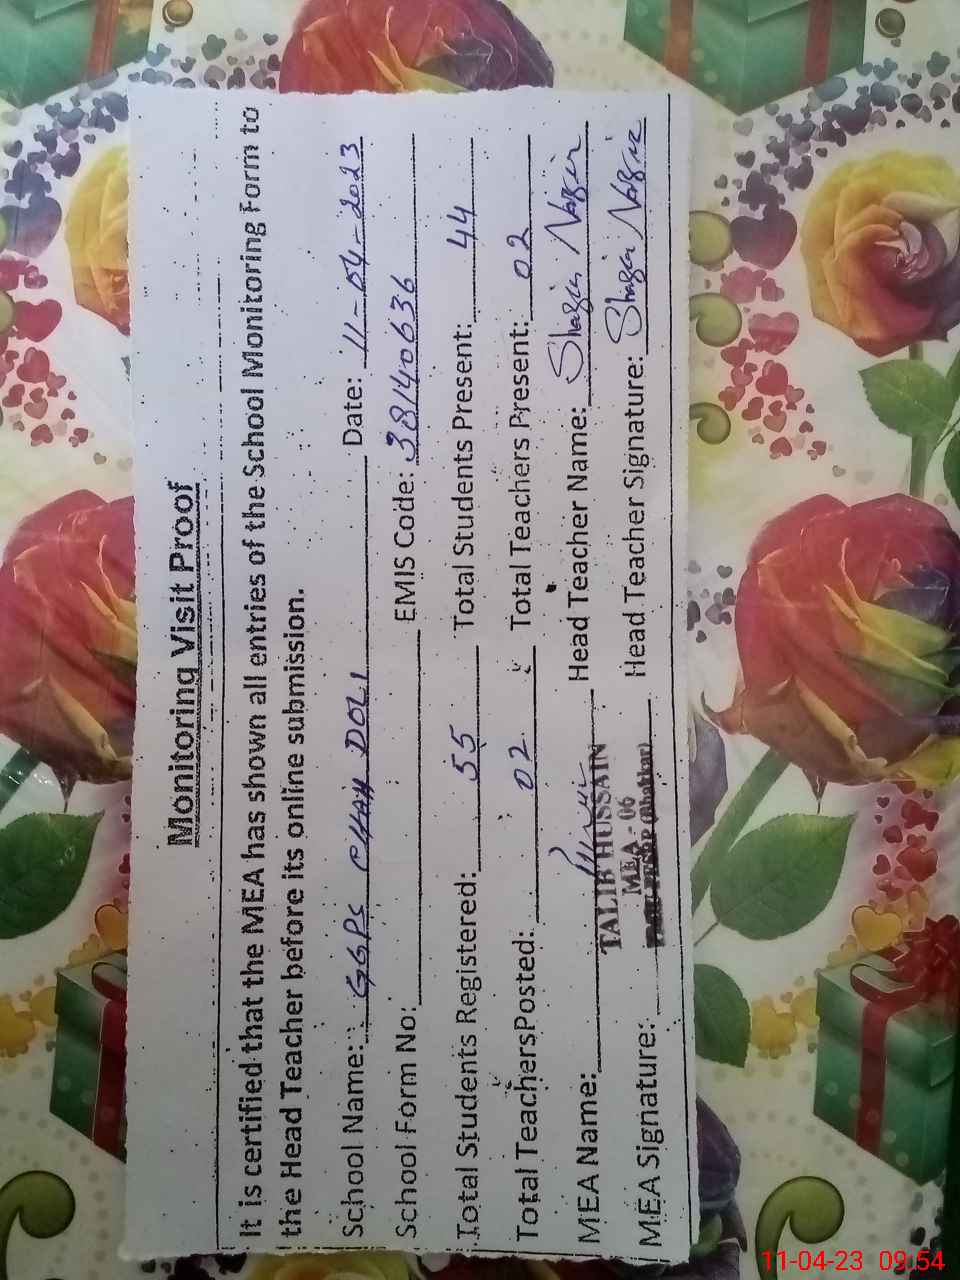 Monitoring Visit Proof
It is certified that the MEA has shown all entries of the School Monitoring Form to
the Head Teacher before its online submission.
School Name: GGPS CHAH DOLI Date: 11-04-2023
School Form No: EMIS Code: 38140636
Total Students Registered: 55 Total Students Present: 44
Total TeachersPosted: 02 Total Teachers Present: 02
MEA Name: Head Teacher Name: Shazia Nazir
TALIB HUSSAIN
MEA - 06
(Bhakkar)
MEA Signature: Head Teacher Signature: Shazia Nazir
11-04-23 09:54